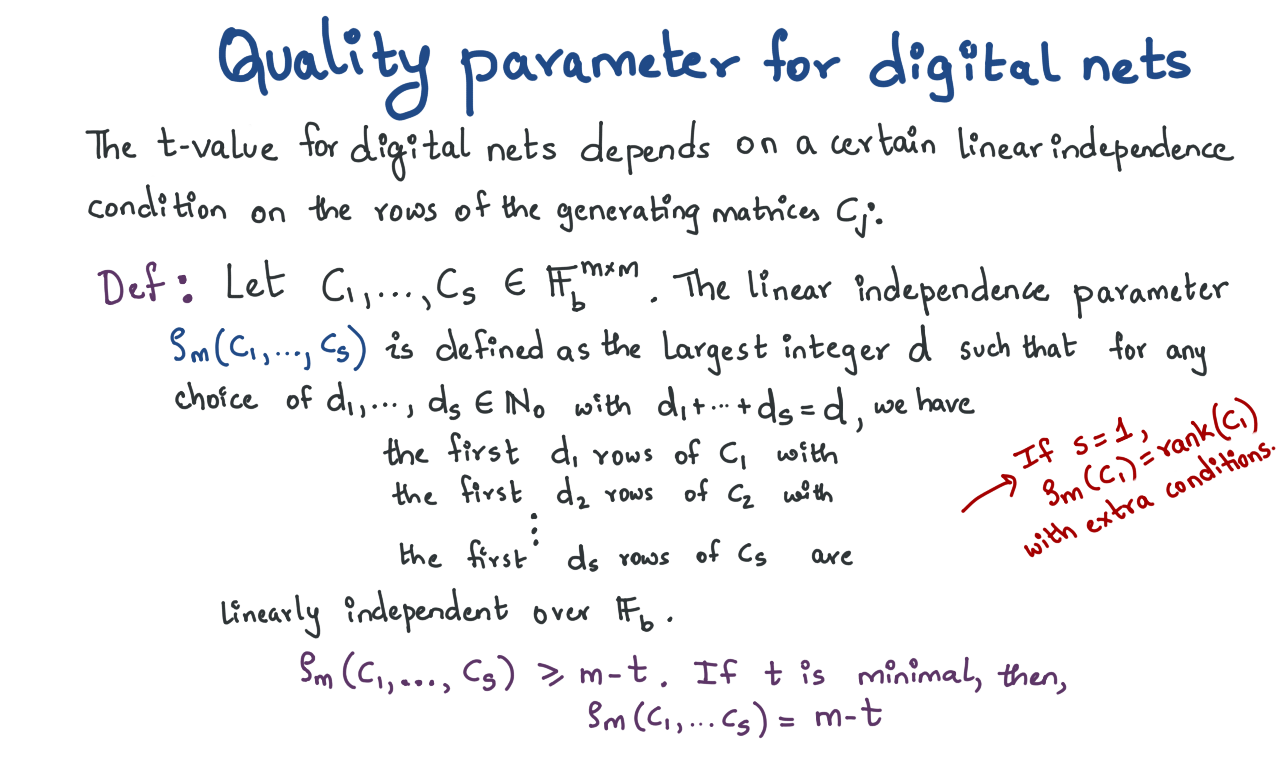 Quality parameter for digital nets
The t-value for digital nets depends on a certain linear independence
condition on the rows of the generating matrices Cⱼ.
Def: Let C₁,...,Cₛ ∈ 𝔽_b^{m×m}. The linear independence parameter
ρₘ(C₁,...,Cₛ) is defined as the largest integer d such that for any
choice of d₁,...,dₛ ∈ ℕ₀ with d₁+···+dₛ=d, we have
the first d₁ rows of C₁ with
the first d₂ rows of C₂ with
⋮
the first dₛ rows of Cₛ are
linearly independent over 𝔽_b.
→ If s=1,
ρₘ(C₁)=rank(C₁)
with extra conditions.
ρₘ(C₁,...,Cₛ) ≥ m-t. If t is minimal, then,
ρₘ(C₁,...Cₛ) = m-t